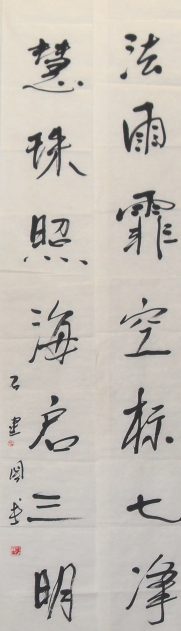 法雨霏空标七净
慧珠照海启三明
建